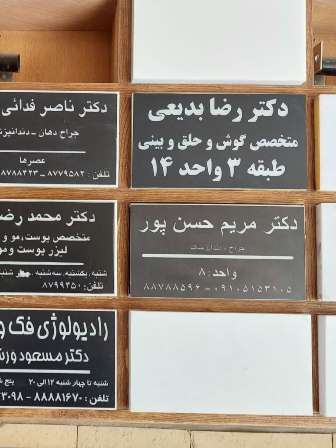 دکتر ناصر فدائی
جراح دهان - دندانپز
عصرها
تلفن: ۸۷۷۹۵۸۲ - ۸۷۸۸۴۲۳
دکتر رضا بدیعی
متخصص گوش و حلق و بینی
طبقه ۳ واحد ۱۴
دکتر محمد رض
متخصص پوست، مو و
لیزر پوست و مو
شنبه، یکشنبه، سه شنبه،
تلفن: ۸۷۹۹۴۵۰
دکتر مریم حسن پور
جراح
واحد: ۸
۸۸۷۸۸۵۹۶ - ۰۹۱۰۵۱۵۳۱۰۵
رادیولوژی فک و
دکتر مسعود ورش
شنبه تا چهار شنبه ۱۲ الی ۲۰ پنج
تلفن: ۸۸۸۸۱۶۷۰ - ۳۰۹۸